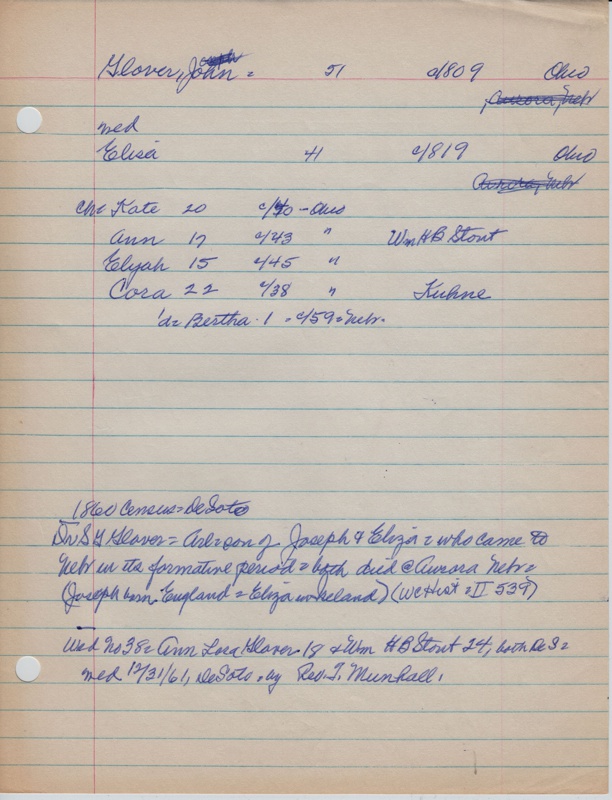 Glover, John = 51 c/1809 Ohio
Aurora, Nebr
wed
Eliza 41 c/1819 Ohio
Aurora, Nebr
ch: Kate 20 c/40 - Ohio
Ann 17 c/43 " Wm H B Stout
Elijah 15 c/45 "
Cora 22 c/38 " Kuhne
'd= Bertha - 1 = c/59 = Nebr.
1860 Census = DeSoto
Dr S G Glover = Arl = son of Joseph & Eliza = who came to
Nebr in its formative period = both died @ Aurora Nebr =
(Joseph born England = Eliza in Ireland) (WC Hist = II 539)
Wed No 38 = Ann Lora Glover 18 & Wm H B Stout 24, both DeS =
wed 12/31/61, DeSoto = by Rev. T. Munhall.